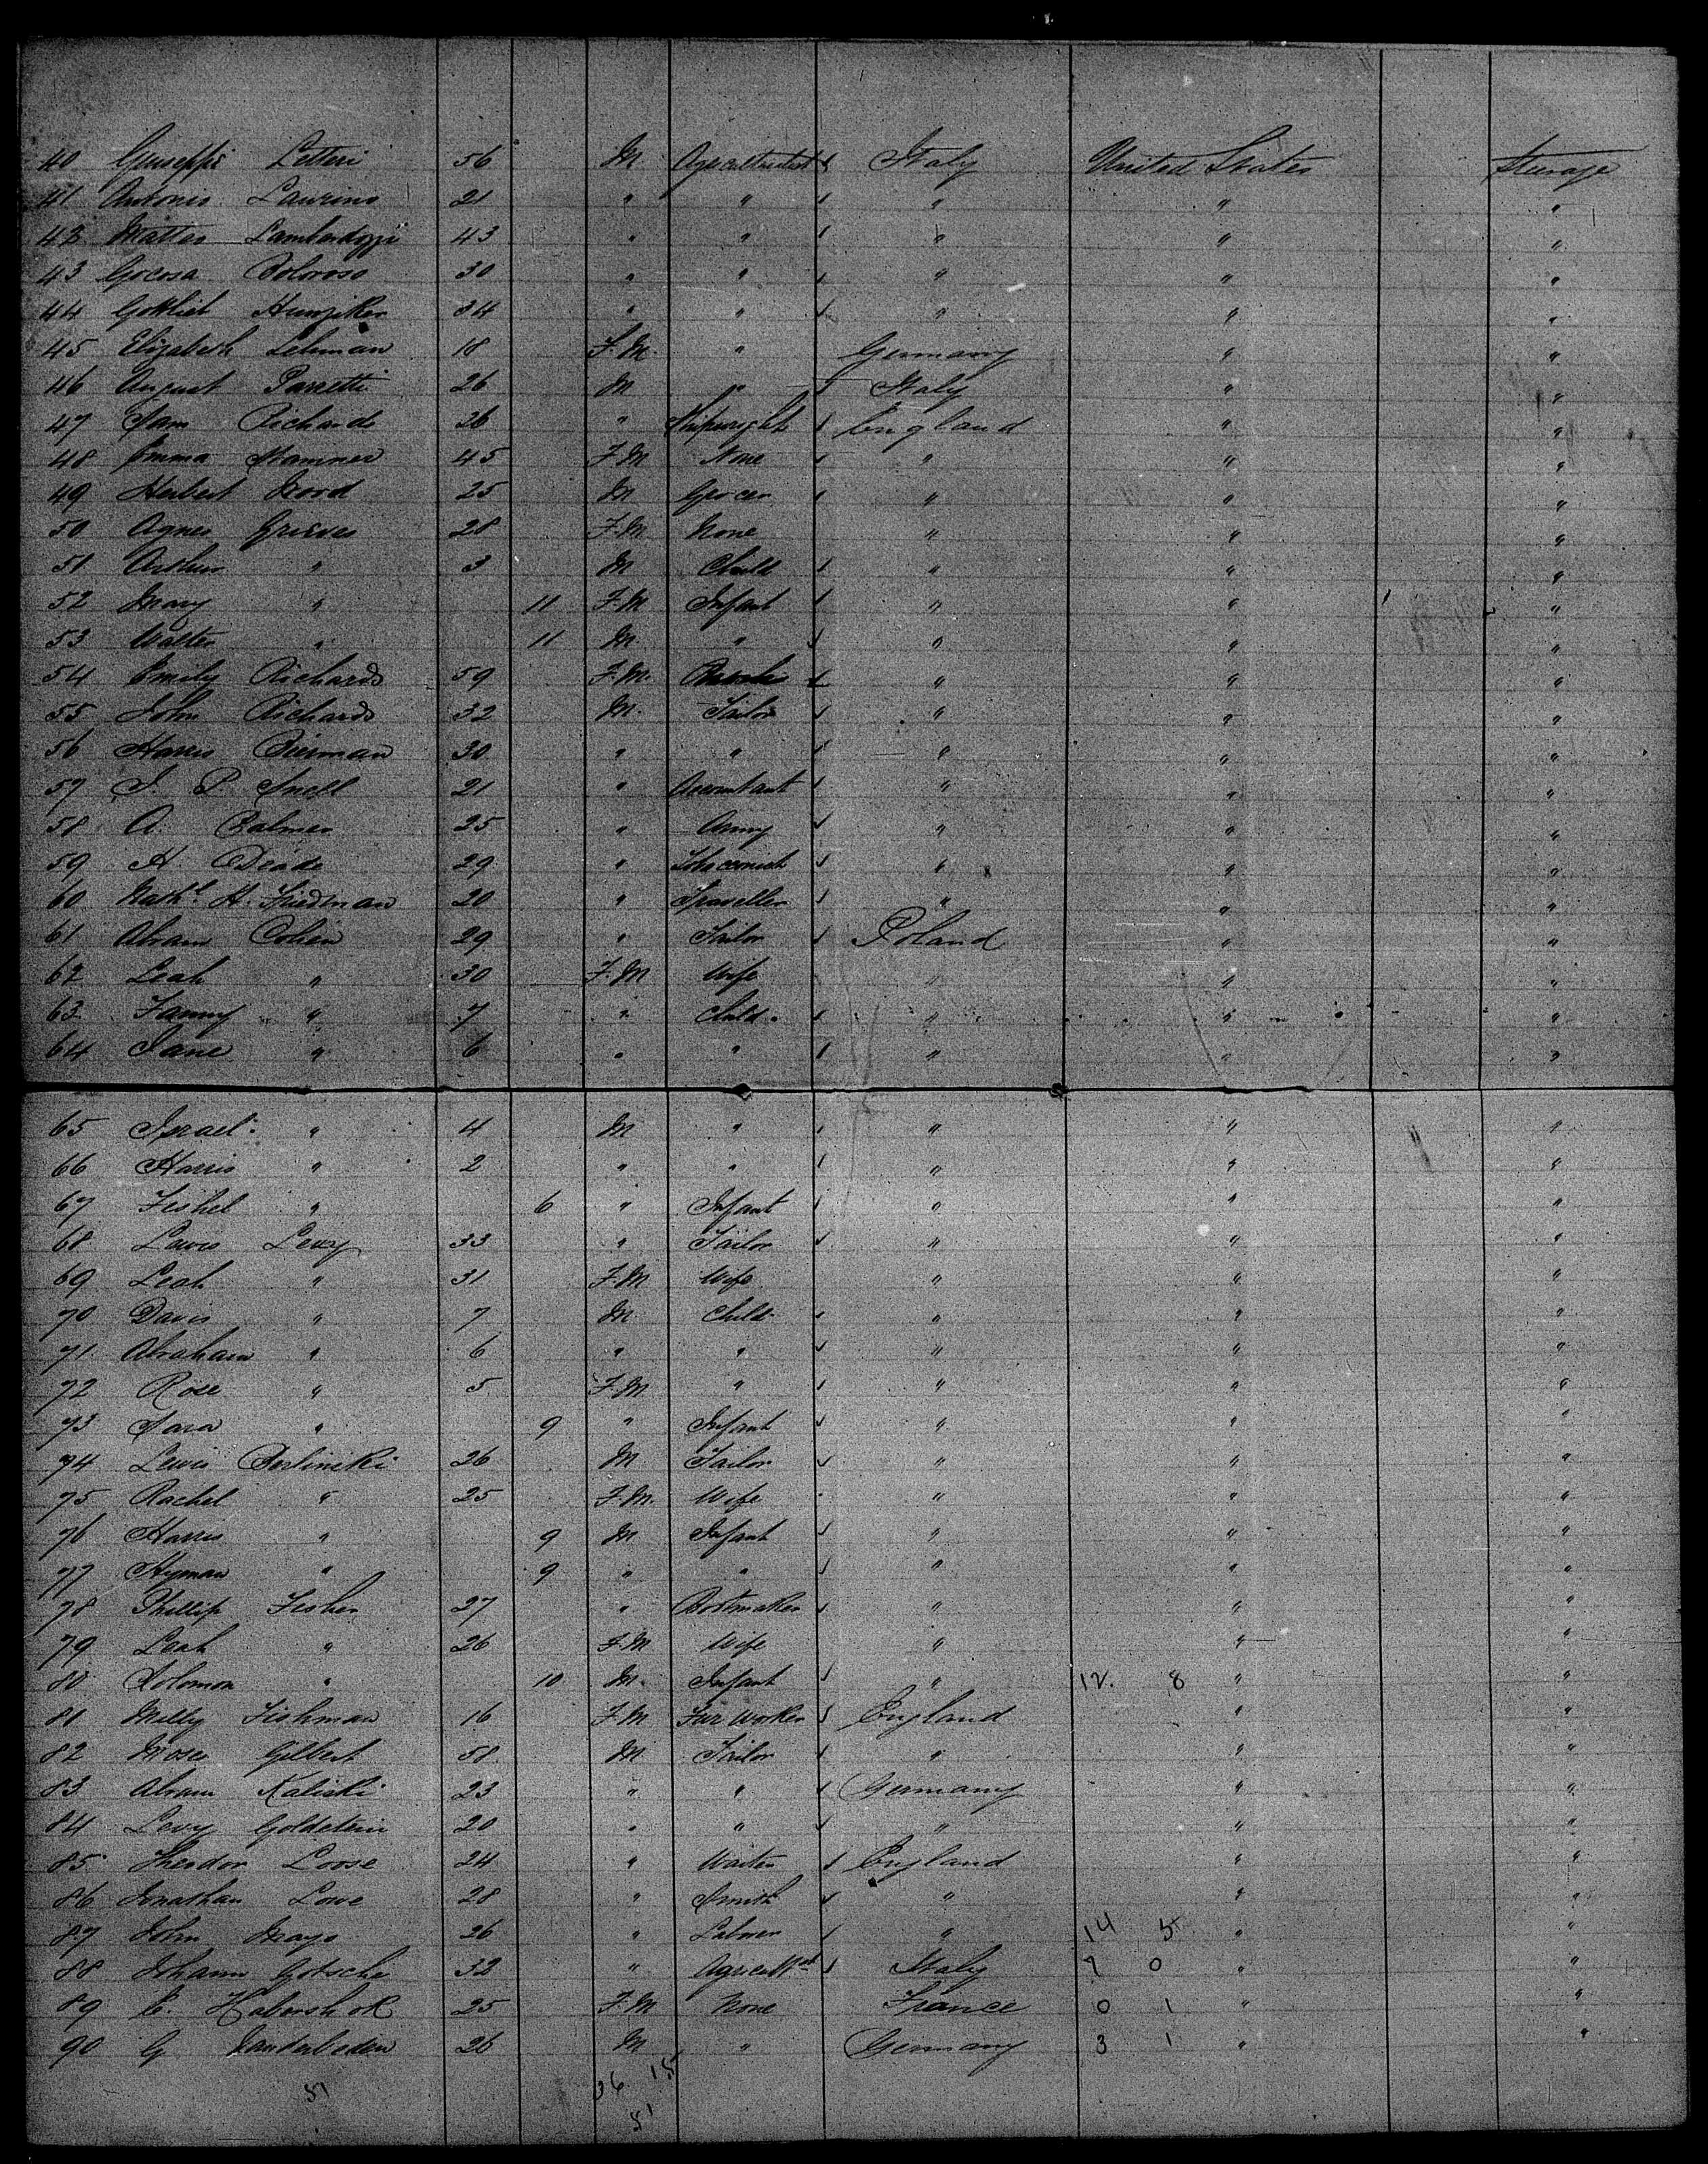 40 Guiseppi Letteri 56 M Agriculturist Italy United States Steerage
41 Antonio Laurino 21 " " " " "
42 Matteo Lambardozzi 43 " " " " "
43 30 " " " " "
44 Gottlieb Hunziker 34 " " " " "
45 Elizabeth Lehman 18 F.M. " Germany " "
46 August Panetti 26 M " Italy " "
47 Sam Richards 26 " Shipwright England " "
48 Emma 45 F.M None " " "
49 Herbert 25 M Grocer " " "
50 Agnes Grieves 28 F.M None " " "
51 Arthur " 3 M Child " " "
52 Mary " 11 F.M Infant " " "
53 Walter " 11 M " " " "
54 Emily Richards 59 F.M. " " "
55 John Richards 32 M. Tailor " " "
56 Harris Bierman 30 " " " " "
57 P. Snell 21 " Accountant " " "
58 A. 25 " Army " " "
59 H Deade 29 " Tobacconist " " "
60 Nathl. H. Friedman 20 " Traveller " " "
61 Abram Cohen 29 " Tailor Poland " "
62 Leah " 30 F.M Wife " " "
63 Fanny " 7 " Child " " "
64 Jane " 6 " " " " "
65 Israel " 4 M " " " "
66 Harris " 2 " " " " "
67 Fishel " 6 " Infant " " "
68 Lewis Levy 33 " Tailor " " "
69 Leah " 31 F.M Wife " " "
70 Davis " 7 M. Child " " "
71 Abraham " 6 " " " " "
72 Rose " 5 F.M " " " "
73 Sara " 9 " Infant " " "
74 Lewis Berlinski 26 M Tailor " " "
75 Rachel " 25 F.M. Wife " " "
76 Harris " 9 M Infant " " "
77 Hyman " 9 " " " " "
78 Phillip Fisher 27 " Bootmaker " " "
79 Leah " 26 F.M Wife " " "
80 Solomon " 10 M. Infant " 12. 8 " "
81 Milly Fishman 16 F.M Fur Worker England " "
82 Moses Gilbert 58 M Tailor " " "
83 Abram Kaliski 23 " " Germany " "
84 Levy Goldstein 20 " " " " "
85 Theodor Loose 24 " Waiter England " "
86 Jonathan Lowe 28 " Smith " " "
87 John Mays 26 " Laborer " 14 5 " "
88 Johann Gotsche 32 " Italy 7 0 " "
89 E. 25 F.M None France 0 1 " "
90 G 26 M " Germany 3 1 " "
51 36 15
51